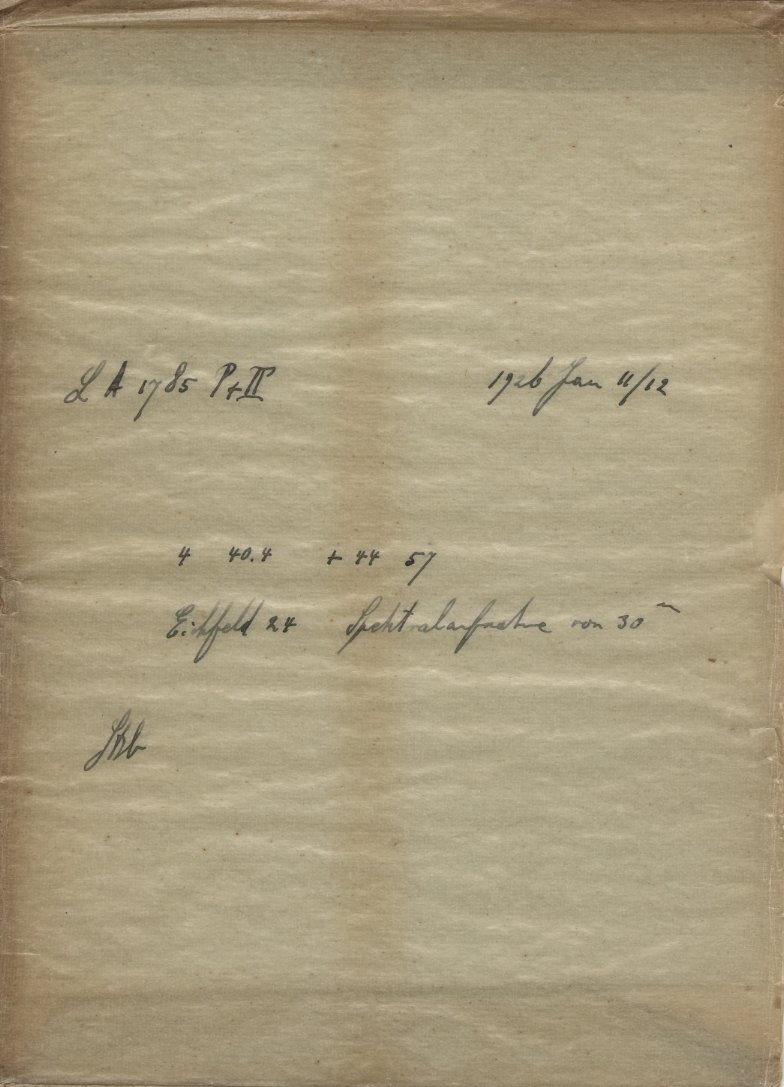 L A 1785 P+II 1926 Jan 11/12
4 40.4 + 44 57
Eichfeld 24 Spektralaufnahme von 30 m
Strb